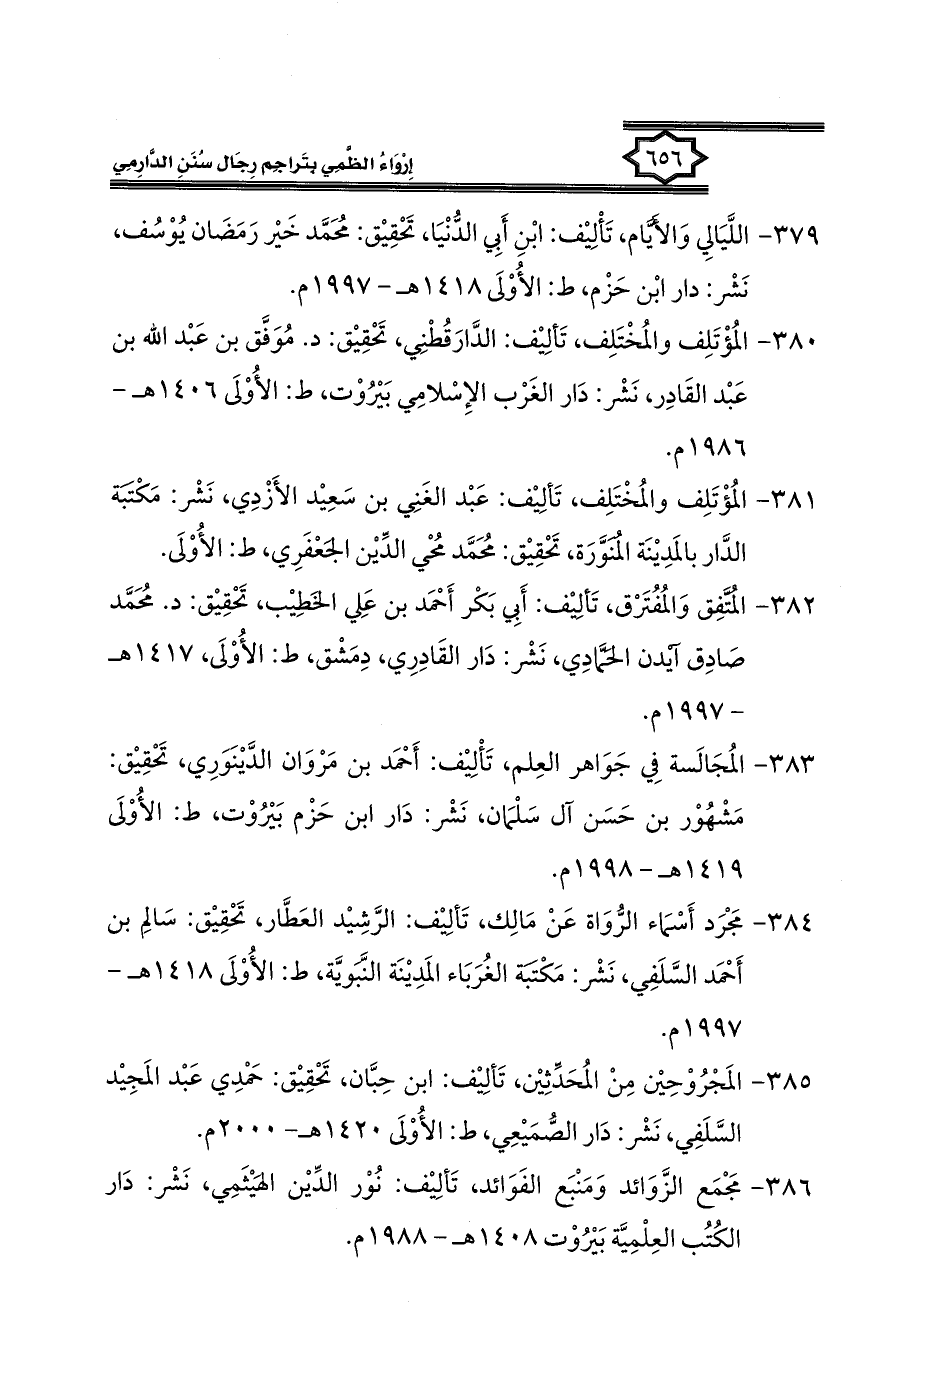 ٦٥٦
إِرْوَاءُ الظَّمِي بِتَراجِمِ رِجَالِ سُنَنِ الدَّارِمِي
٣٧٩- اللَّيَالِي وَالأَيَّام، تَأْلِيْف: ابْنِ أَبِي الدُّنْيَا، تَحْقِيْق: مُحَمَّد خَيْر رَمَضَان يُوْسُف،
نَشْر: دار ابْن حَزْم، ط: الأُوْلَى ١٤١٨هـ - ١٩٩٧م.
٣٨٠- المُؤتَلِف والمُخْتَلِف، تَأليْف: الدَّارَقُطْنِي، تَحْقِيْق: د. مُوَفَّق بن عَبْد الله بن
عَبْد القَادِر، نَشْر: دَار الغَرْب الإسْلامِي بَيْرُوْت، ط: الأُوْلَى ١٤٠٦هـ -
١٩٨٦م.
٣٨١- المُؤْتَلِف والمُخْتَلِف، تَأليْف: عَبْد الغَنِي بن سَعِيْد الأَزْدِي، نَشْر: مَكْتَبَة
الدَّار بالمَدِيْنَة المُنَوَّرَة، تَحْقِيْق: مُحَمَّد مُحْي الدِّيْن الجَعْفَرِي، ط: الأُوْلَى.
٣٨٢- المُتَّفِق وَالمُفْتَرْق، تَألِيْف: أَبِي بَكْر أَحْمَد بن عَلِي الخَطِيْب، تَحْقِيْق: د. مُحَمَّد
صَادِق آيْدن الحَمَّادِي، نَشْر: دَار القَادِرِي، دِمَشْق، ط: الأُوْلَى، ١٤١٧هـ
- ١٩٩٧م.
٣٨٣- المُجَالَسة فِي جَوَاهر العِلم، تَأْلِيْف: أَحْمَد بن مَرْوَان الدَّيْنَوَرِي، تَحْقِيْق:
مَشْهُوْر بن حَسَن آل سَلْمَان، نَشْر: دَار ابن حَزْم بَيْرُوْت، ط: الأُوْلَى
١٤١٩هـ - ١٩٩٨م.
٣٨٤- مَجْرَد أَسْمَاء الرُّوَاة عَنْ مَالِك، تَألِيْف: الرَّشِيْد العَطَّار، تَحْقِيْق: سَالِم بن
أَحْمَد السَّلَفِي، نَشْر: مَكْتَبَة الغُرَبَاء المَدِيْنَة النَّبَوِيَّة، ط: الأُوْلَى ١٤١٨هـ -
١٩٩٧م.
٣٨٥- المَجْرُوْحِيْن مِنْ المُحَدِّثِيْن، تَألِيْف: ابن حِبَّان، تَحْقِيْق: حَمْدِي عَبْد المَجِيْد
السَّلَفِي، نَشْر: دَار الصُّمَيْعِي، ط: الأُوْلَى ١٤٢٠هـ - ٢٠٠٠م.
٣٨٦- مَجْمَع الزَّوَائد وَمَنْبَع الفَوَائد، تَألِيْف: نُوْر الدِّيْن الهَيْثَمِي، نَشْر: دَار
الكُتُب العِلْمِيَّة بَيْرُوْت ١٤٠٨هـ - ١٩٨٨م.